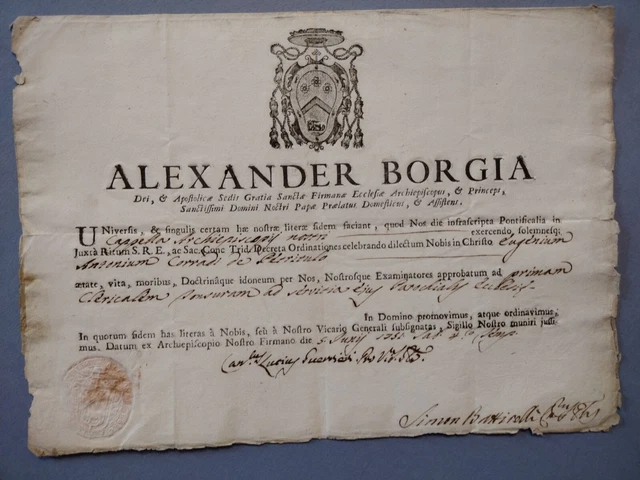 ALEXANDER BORGIA
Dei, & Apostolicæ Sedis Gratia Sanctæ Firmanæ Ecclesiæ Archiepiscopus, & Princeps,
Sanctissimi Domini Nostri Papæ Prælatus Domesticus, & Assistens.
UNiversis, & singulis certam hæ nostræ literæ fidem faciant, quod Nos die infrascripta Pontificalia in
Cappella Archiepiscopii nostri exercendo, solemnesq;
Juxtà Ritum S. R. E., ac Sac. Conc. Trid. Decreta Ordinationes celebrando dilectum Nobis in Christo Eugenium
Antonium Corradi de
ætate, vita, moribus, Doctrinâque idoneum per Nos, Nostrosque Examinatores approbatum ad primam
Clericalem Tonsuram ad servitia ejus Parochialis Ecclesiæ
In Domino promovimus, atque ordinavimus,
In quorum fidem has literas à Nobis, seù à Nostro Vicario Generali subsignatas, Sigillo Nostro muniri jussi-
mus. Datum ex Archiepiscopio Nostro Firmano die
Simon Batticelli